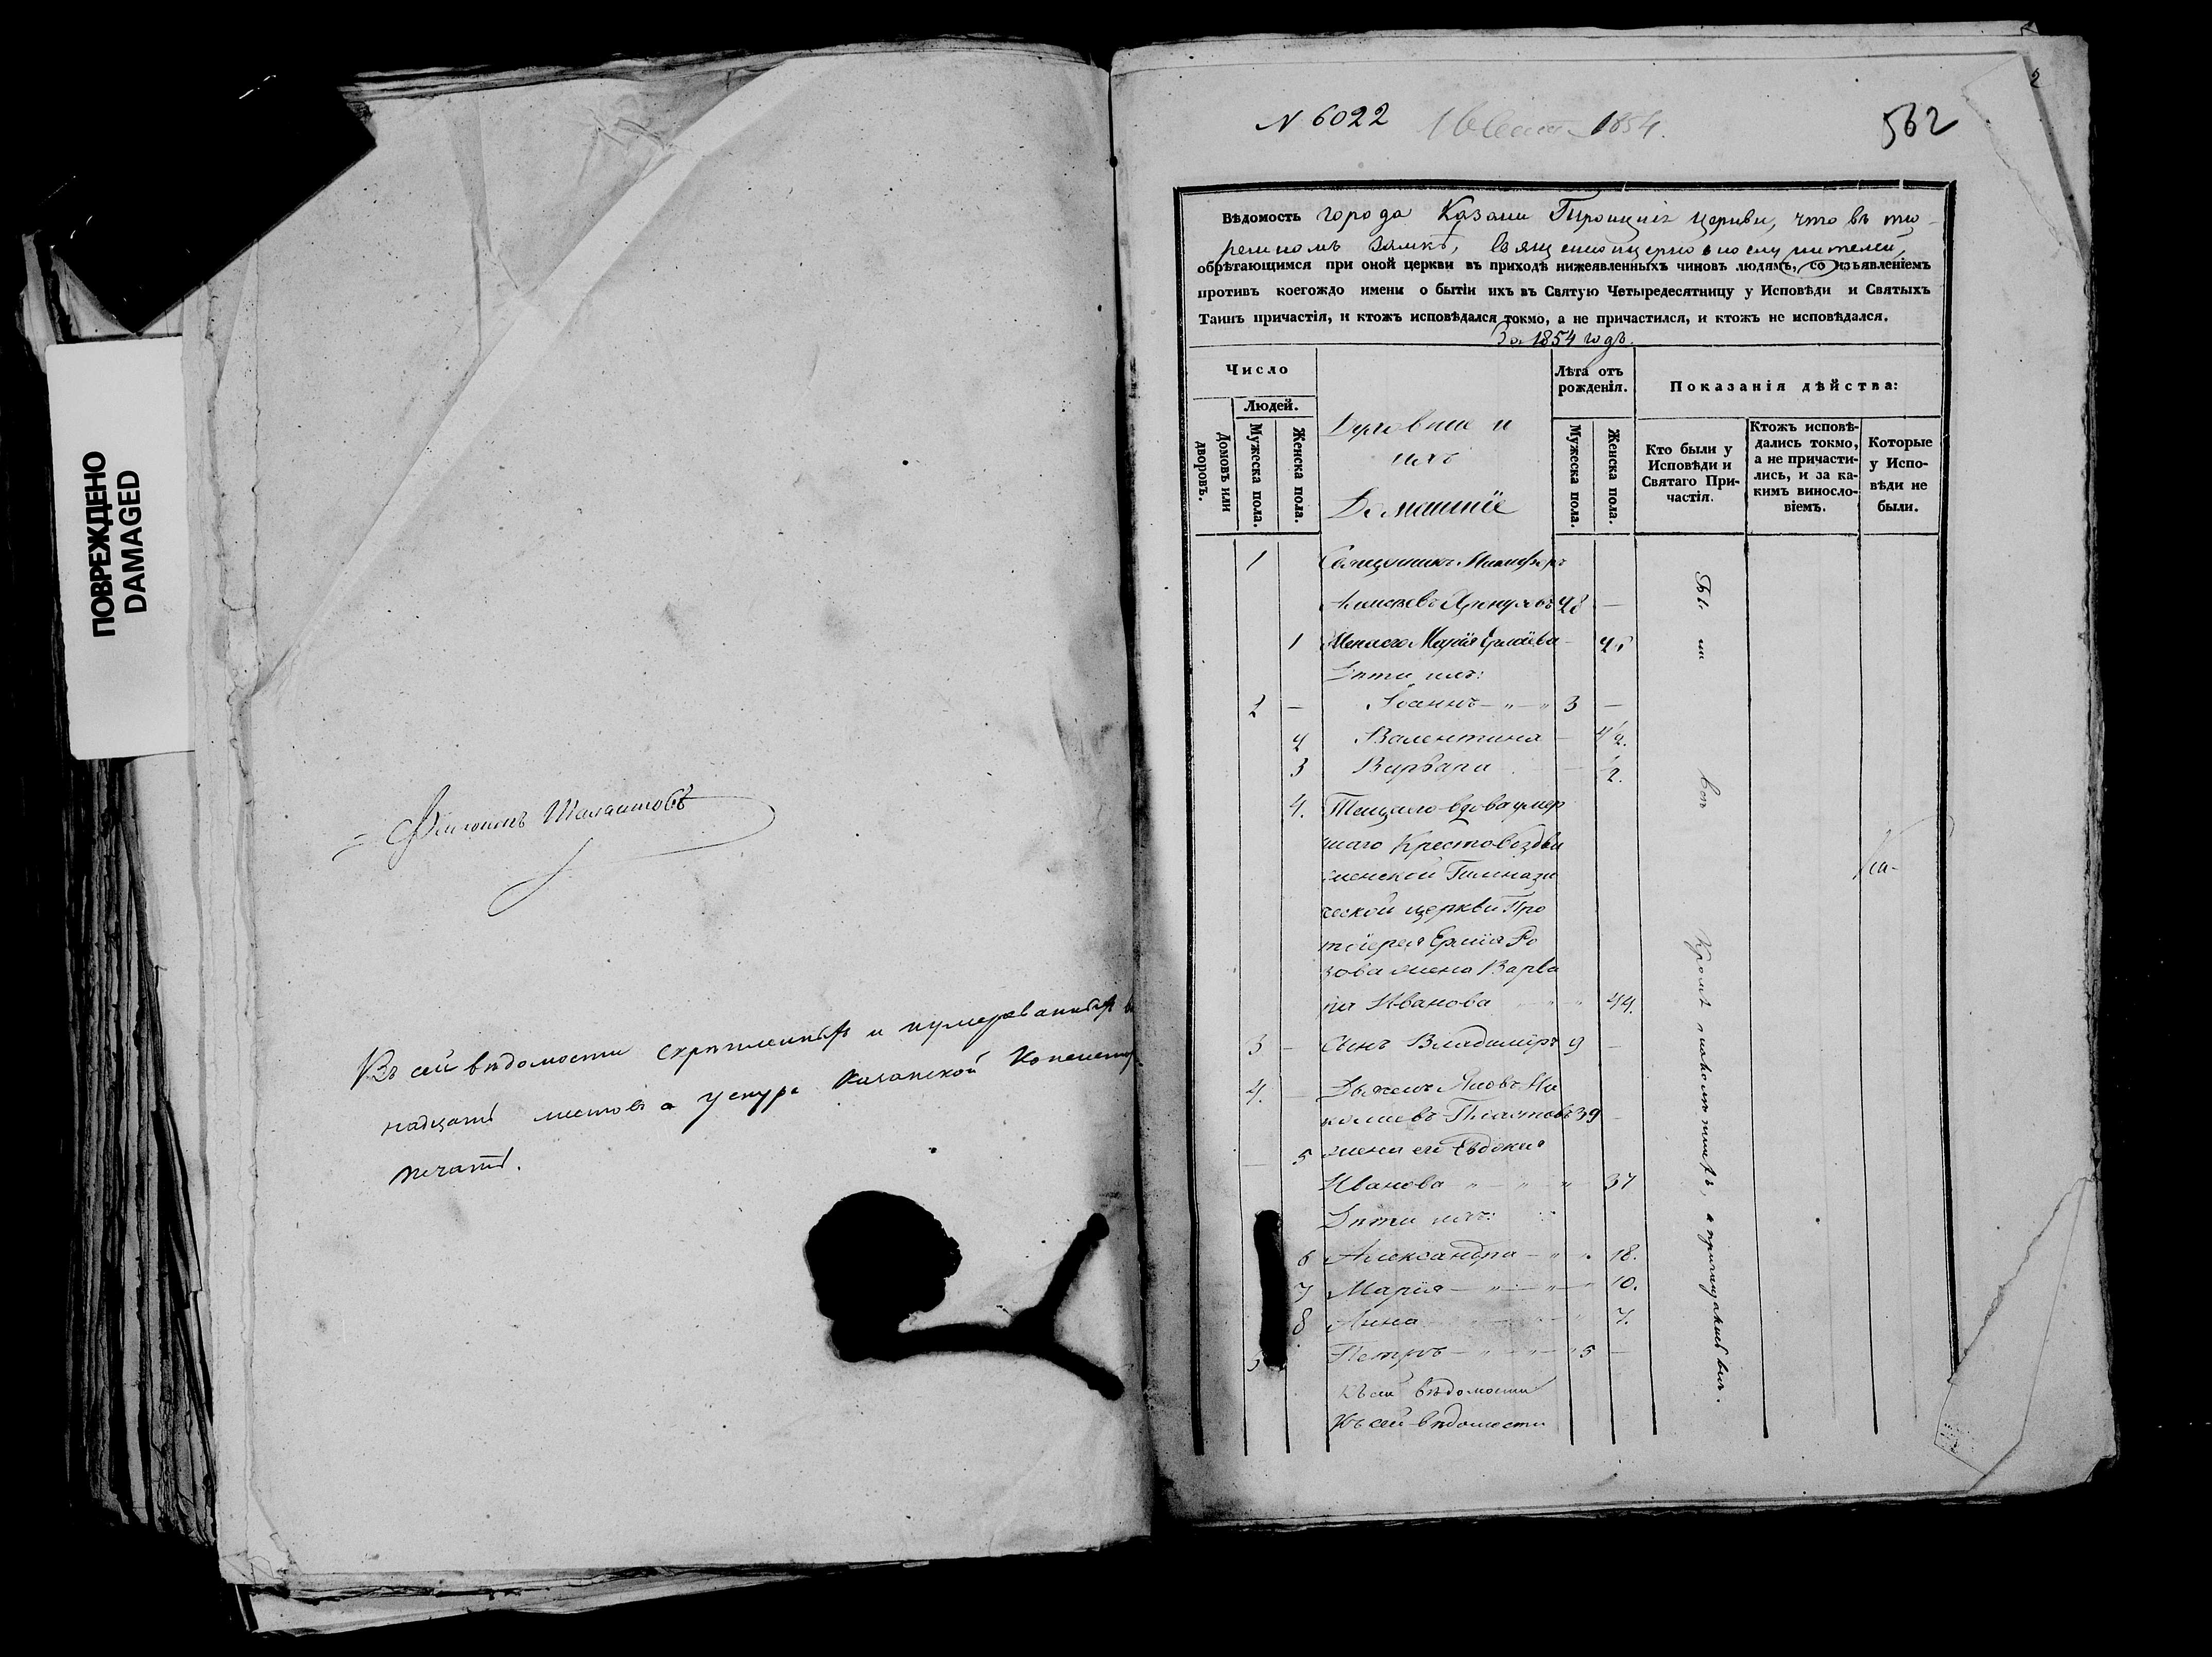 ПОВРЕЖДЕНО
DAMAGED
Въ сей вѣдомости скрѣпленныхъ и нумерованныхъ
надцать листовъ а у снура Казанской Консистор
печать.
N 6022
1854.
562
2
Вѣдомость города Казани Троицкія церкви, что въ тю-
ремномъ замкѣ, Священноцерковнослужителей,
обрѣтающимся при оной церкви въ приходѣ нижеявленныхъ чиновъ людямъ, со изъявленіемъ
противъ коегождо имены о бытіи ихъ въ Святую Четыредесятницу у Исповѣди и Святыхъ
Таинъ причастія, и ктожъ исповѣдался токмо, а не причастился, и ктожъ не исповѣдался.
За 1854 годъ.
Число
Людей.
Домовъ или дворовъ.
Мужеска пола.
Женска пола.
Духовные и
ихъ
Домашніе
Лѣта отъ рожденія.
Мужеска пола.
Женска пола.
Показанія дѣйства:
Кто были у Исповѣди и Святаго При-частія.
Ктожъ исповѣ-дались токмо, а не причасти-лись, и за ка-кимъ винослo-віемъ.
Которые у Испо-вѣди не были.
1 Священникъ Никифоръ
Алексѣевъ 28 —
1 Жена его Марія Ерміева —
Дѣти ихъ:
2 — Іоаннъ — " — " 3 —
2 Валентина —
3 Варвара — ½.
4. Теща его вдова умер
шаго Крестовоздви
женской Гимнази
ческой церкви Про
тоіерея Ермія Ро
зова жена Варва
ра Иванова 44.
3 — Сынъ Владиміръ 9 —
4. — Дьяконъ Яковъ Ни
колаевъ Платновъ 39 —
5 жена его Евдокия
Иванова " — " — " 37
Дѣти ихъ:
6 Александра — " 18.
7 Марія — " — " — " 10.
8 Анна 7.
5 Петръ — " — " — " 5 —
Къ сей вѣдомости
Къ сей вѣдомости
Бы ли всѣ
Кромѣ
а причащались всѣ.